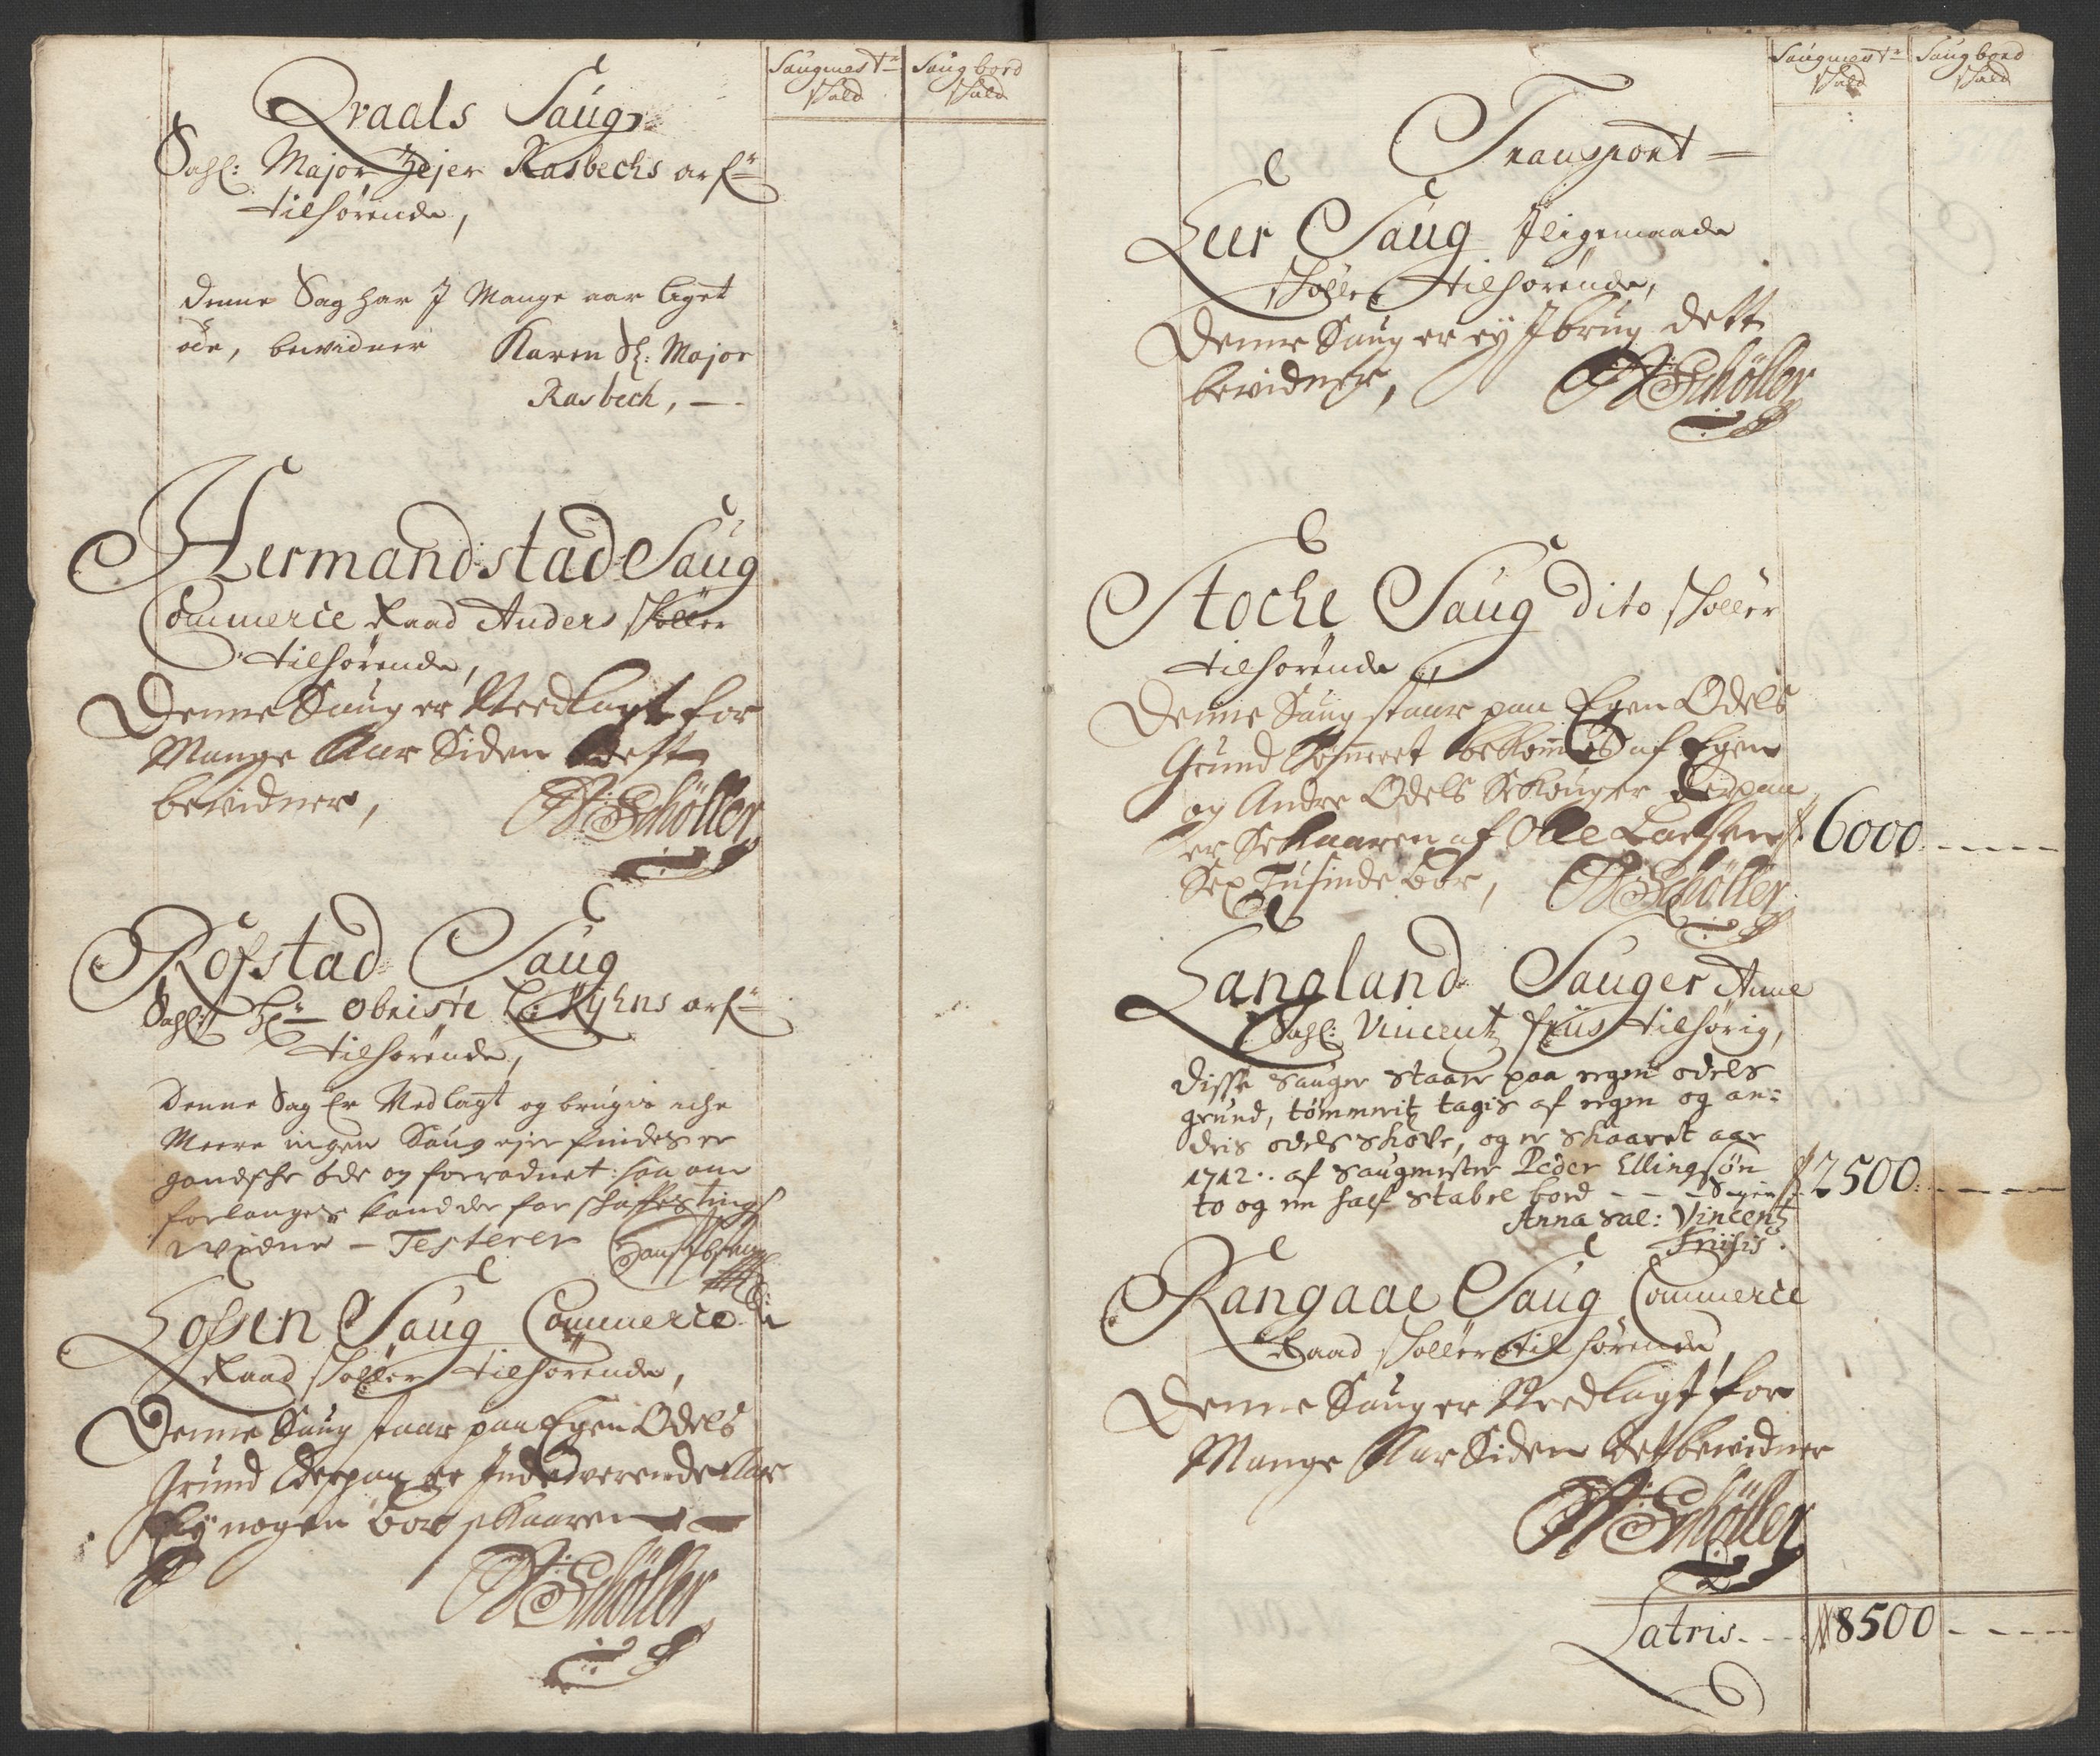 Saugmestr Saugbord
skald skald
Qvaals Saug
Sahl: Major Zejer Rasbechs arf:
tilhørende,
Denne Sag har J Mange aar liget
øde, bevidner Karen Sl: Major
Rasbech, —
Hermandstad Saug
Commerce Raad Anders Skøller
tilhørende,
Denne Saug er Needlagt for
Mange Aar Siden dett
bevidner,
A: Schøller
Rofstad Saug
Sahl: Hr: Obriste Kyhns arf:
tilhørende,
Denne Sag Er Nedlagt og brugis iche
Meere ingen Saug ejer findes er
gandshe øde og forradnet: saa om
forlanges kand der for skaffes tings
widne – Testerer
Lofsen Saug Commerce
Raad Skøller tilhørende,
Denne Saug staar paa Egen Odels
Grund Derpaa er Indeværende Aar
Ey nogen bor skaaren
A: Schøller
Saugmestr Saugbord
skald skald
Transport
Leer Saug Jligemaade
Skøller tilhørende,
Denne Saug er ey J brug dett
bevidner,
A: Schøller
Stoche Saug Dito Skøller
tilhørende,
Denne Saug staar paa Egen Odels
Grund Tømmeret bekommes af Egen
og Andre Odels Skouger Derpaa
er Skaaren af Olle Larsen 6000
Sex Tusinde bor,
A: Schøller
Langland Sauger Anne
Sahl: Vincentz friis tilhørig,
Disse sauger staar paa egen odels
grund, tømmerit tagis af egen og an:
dris odels skove, og er skaaret aar
1712. af saugmester Peder Ellingsøn
to og en half stabel bord - - - 2500
Anna sal: Vincentz
Friisis.
Rangaae Saug Commerce
Raad Skøller tilhørende,
Denne Saug er Needlagt for
Mange Aar Siden det bevidner
A: Schøller
Latris. - - 8500